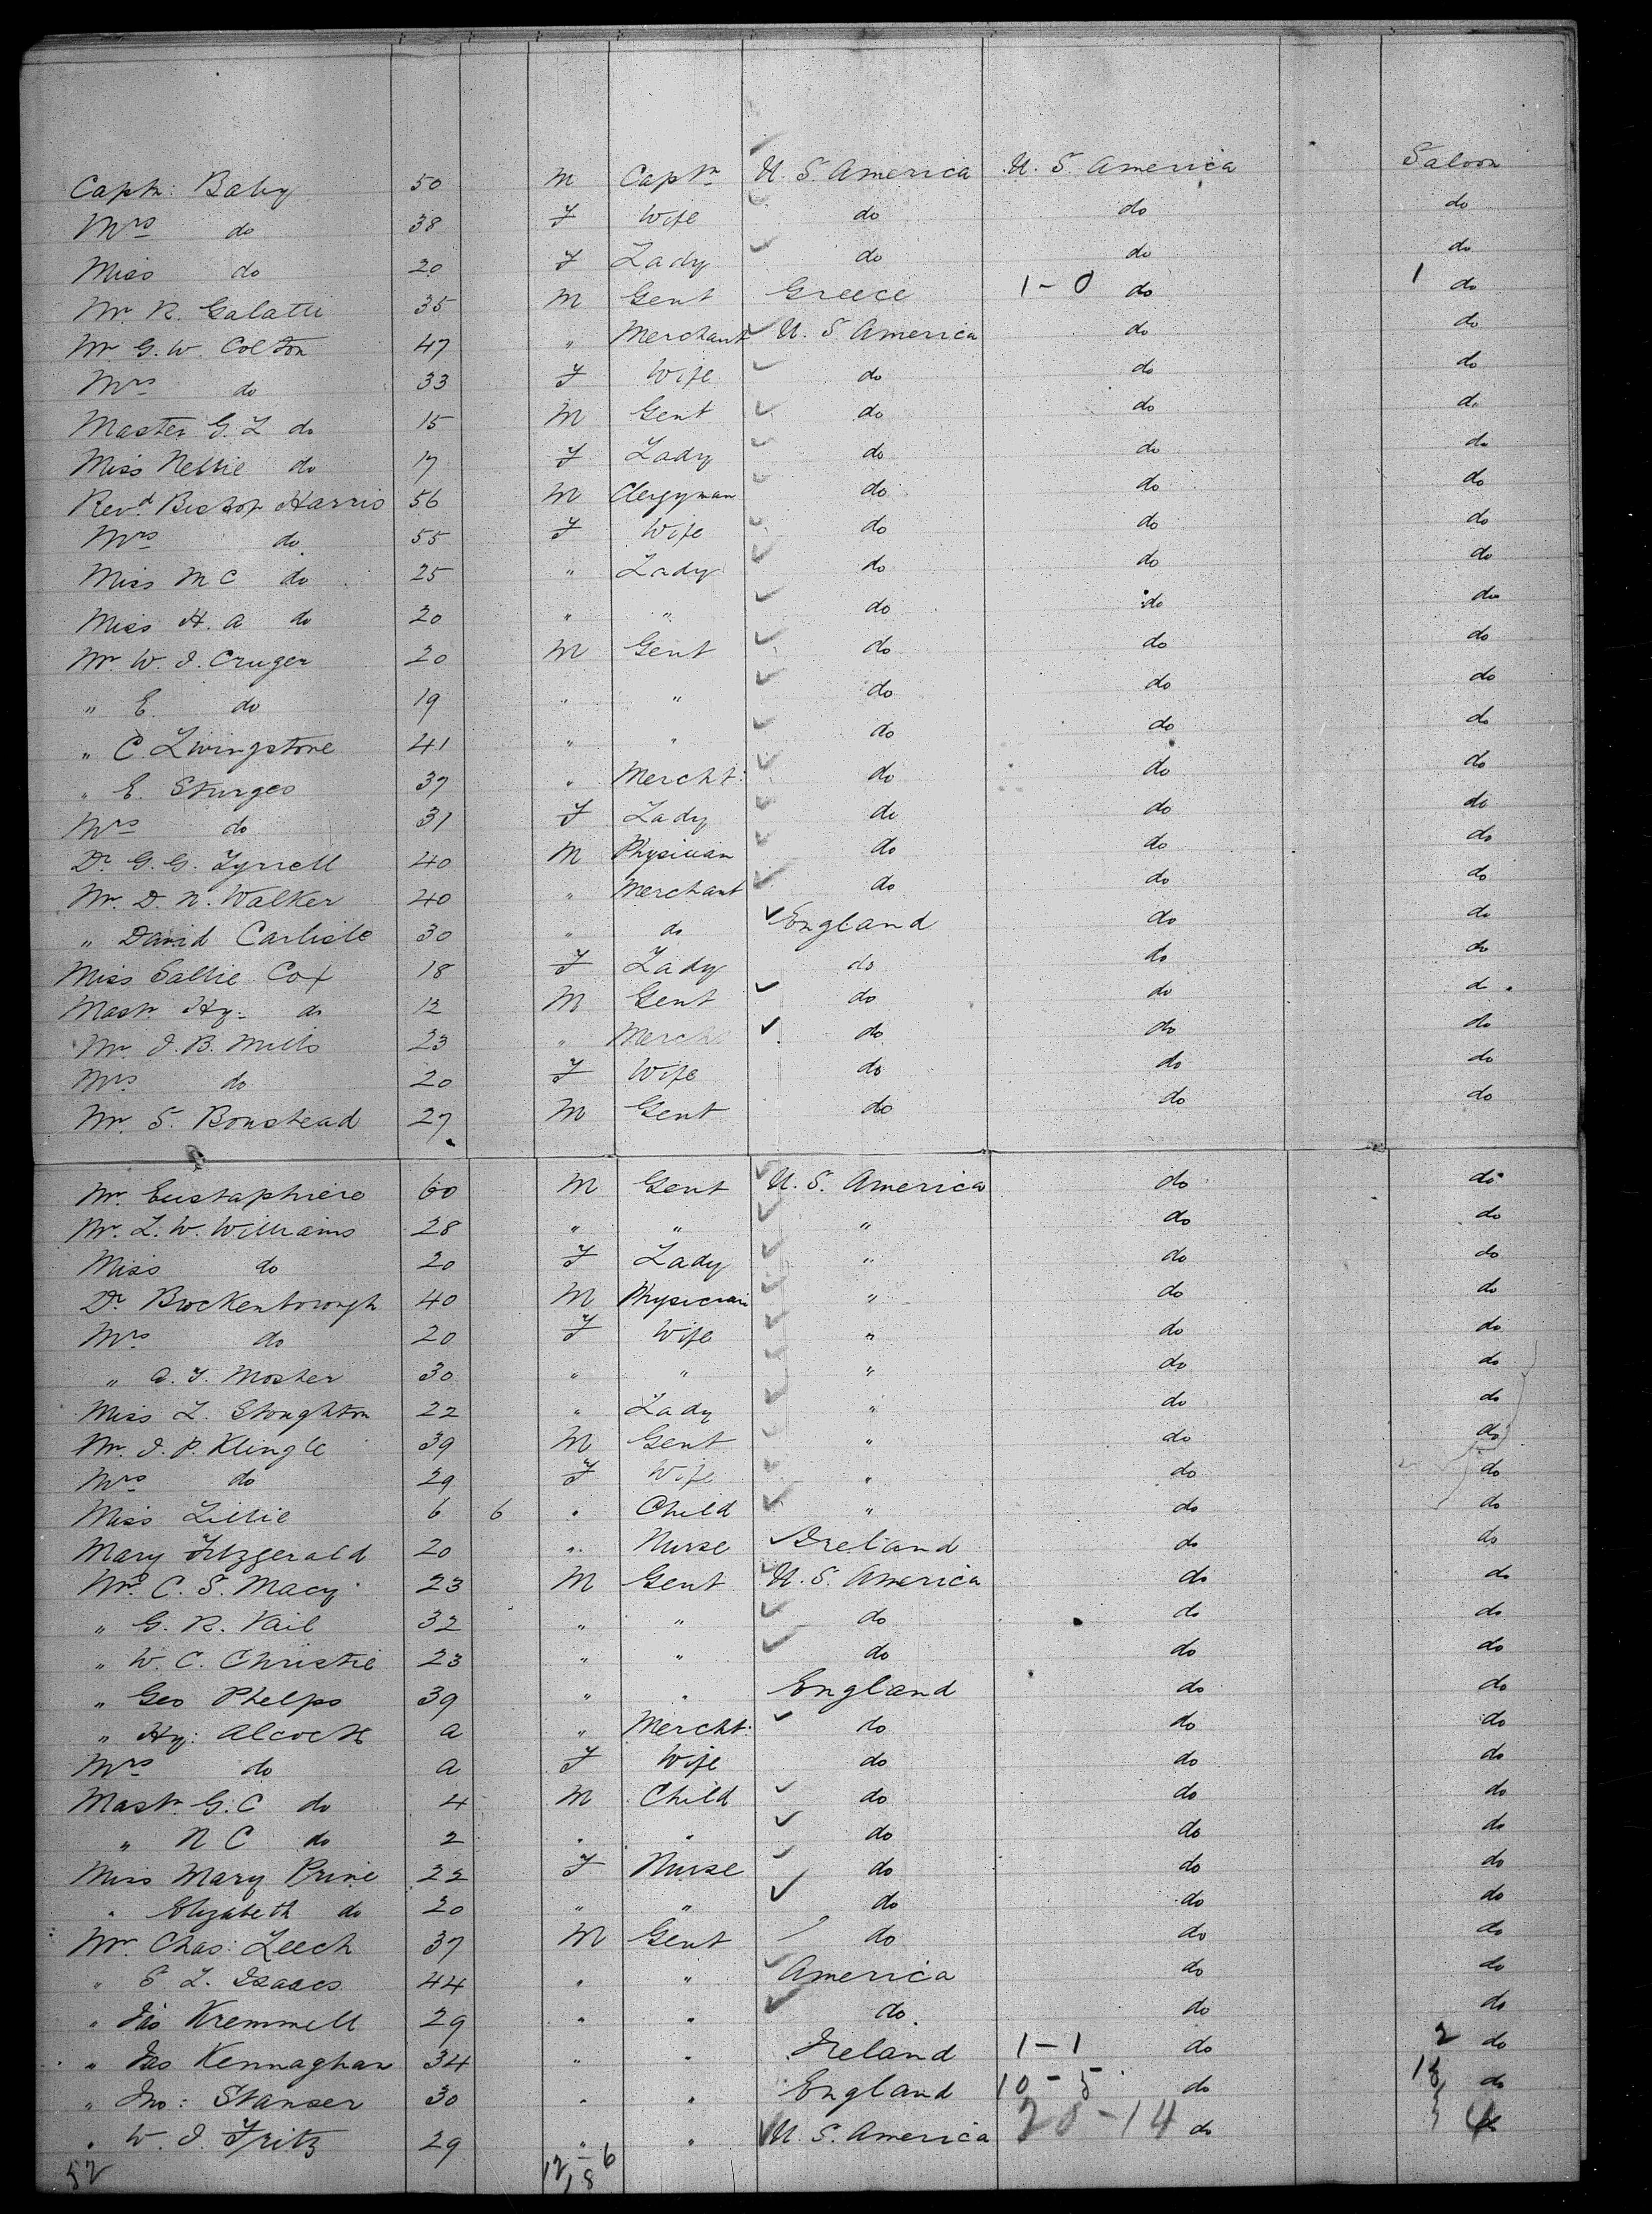 Captn: Baby 50 M Captn U. S. America U. S. America Saloon
Mrs do 38 F Wife do do do
Miss do 20 F Lady do do do
Mr R. Galatti 35 M Gent Greece 1-0 do 1 do
Mr G. W. Colton 47 " Merchant U. S. America do do
Mrs do 33 F Wife do do do
Master G. L do 15 M Gent do do do
Miss Nellie do 17 F Lady do do do
Revd Bishop Harris 56 M Clergyman do do do
Mrs do 55 F Wife do do do
Miss M C do 25 " Lady do do do
Miss H. A do 20 " " do do do
Mr W. J. Cruger 20 M Gent do do do
" E. do 19 " " do do do
" C. Livingstone 41 " " do do do
" E. Sturges 37 " Mercht: do do do
Mrs do 31 F Lady do do do
Dr G. G. Tyrrell 40 M Physician do do do
Mr. D. N. Walker 40 " Merchant do do do
" David Carlisle 30 " do England do do
Miss Sallie Cox 18 F Lady do do do
Mastr Hy: do 12 M Gent do do do
Mr J. B. Mills 23 " Mercht do do do
Mrs do 20 F Wife do do do
Mr. S. Boustead 27 M Gent do do do
Mr. Eustaphieve 60 M Gent U. S. America do do
Mr. L. W. Williams 28 " " " do do
Miss do 20 F Lady " do do
Dr Brockenborough 40 M Physician " do do
Mrs do 20 F Wife " do do
" A. F. Mosher 30 " " " do do
Miss L. Stoughton 22 " Lady " do do
Mr. J. P. Klingle 39 M Gent " do do
Mrs do 29 F Wife " do do
Miss Lillie 6 6 " Child " do do
Mary Fitzgerald 20 " Nurse Ireland do do
Mr. C. S. Macy 23 M Gent U. S. America do do
" G. R. Vail 32 " " do do do
" W. C. Christie 23 " " do do do
" Geo Phelps 39 " " England do do
" Hy: Alcock a " Mercht: do do do
Mrs do a F Wife do do do
Mastr G. C do 4 M Child do do do
" N C do 2 " " do do do
Miss Mary Prine 22 F Nurse do do do
" Elizabeth do 20 " " do do do
Mr. Chas: Leech 37 M Gent do do do
" L. Isaacs 44 " " America do do
" Jas Kremmell 29 " " do do do
" Jas Kennaghan 34 " " Ireland 1-1 do 2 do
" Jno: Stanser 30 " " England 10-5 do do
" W. J. Fritz 29 " " U. S. America 20-14 do do
52 12-6
18